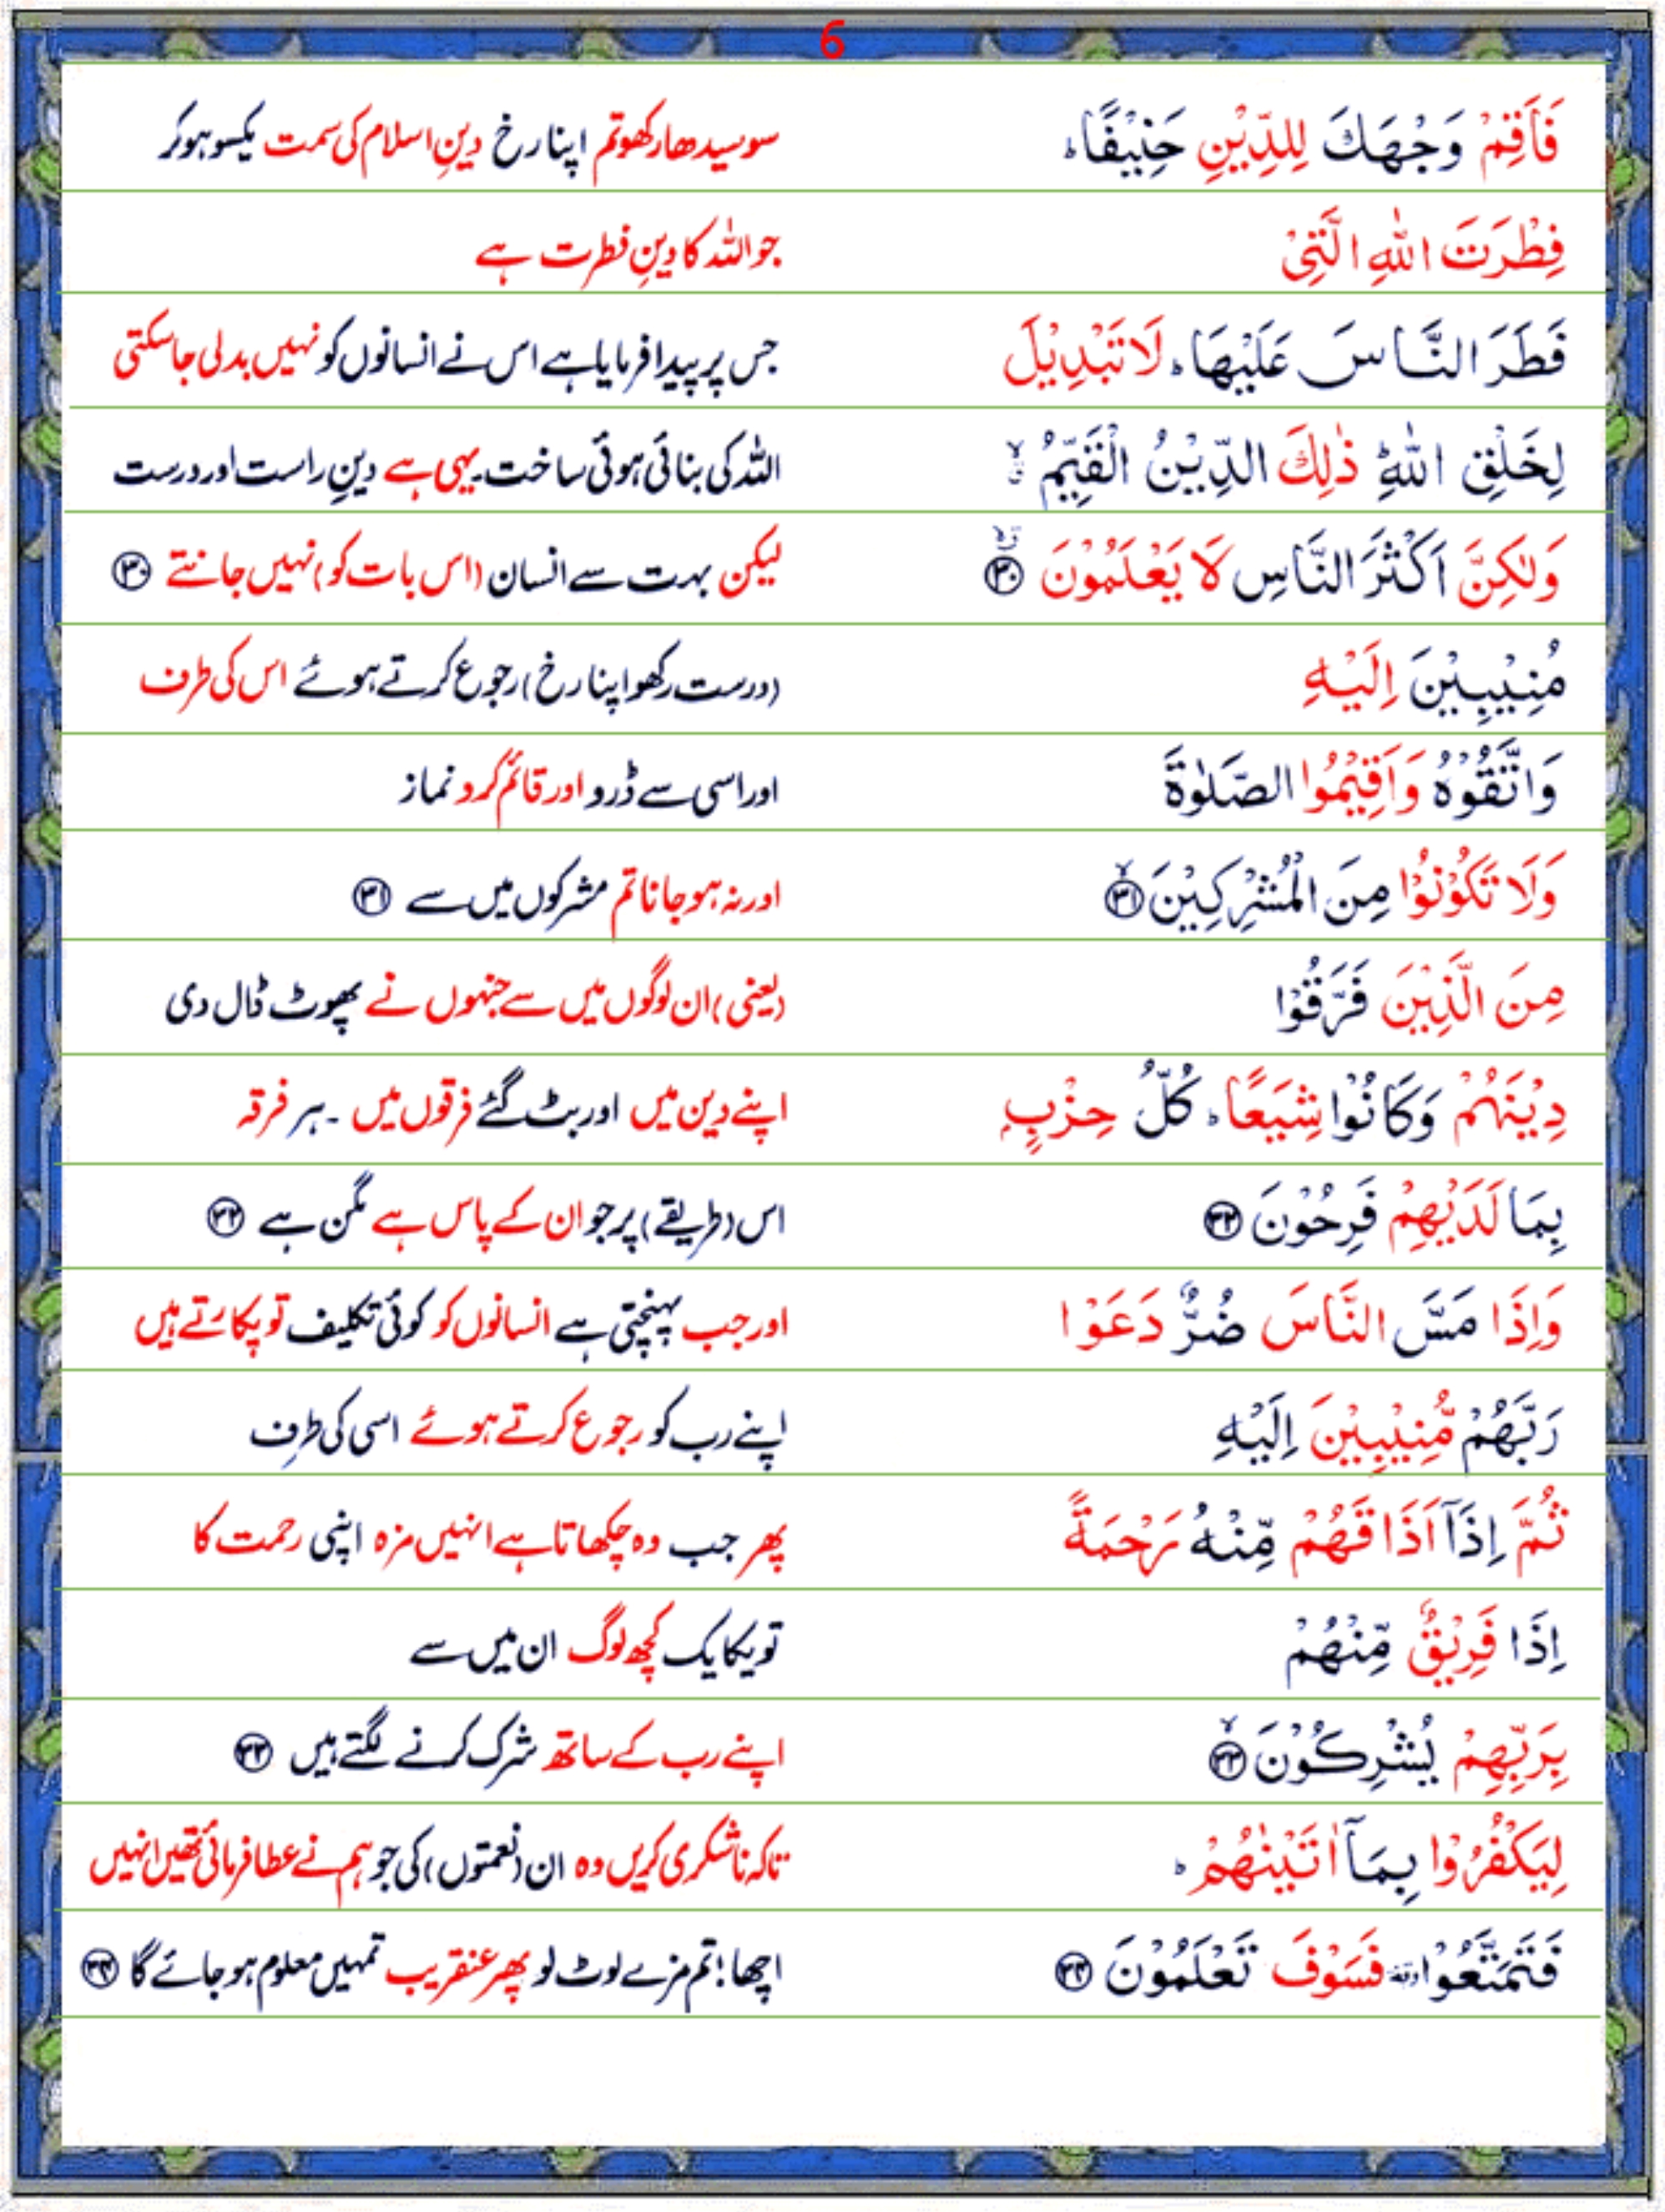 6
فَاَقِمْ وَجْهَكَ لِلدِّيْنِ حَنِيْفًا ؕ سو سیدھا رکھو تم اپنا رخ دینِ اسلام کی سمت یکسو ہوکر
فِطْرَتَ اللّٰهِ الَّتِيْ جو اللہ کا دینِ فطرت ہے
فَطَرَ النَّاسَ عَلَيْهَا ؕ لَا تَبْدِيْلَ جس پر پیدا فرمایا ہے اس نے انسانوں کو نہیں بدلی جاسکتی
لِخَلْقِ اللّٰهِ ؕ ذٰلِكَ الدِّيْنُ الْقَيِّمُ ۙۗ اللہ کی بنائی ہوئی ساخت۔ یہی ہے دینِ راست اور درست
وَلٰكِنَّ اَكْثَرَ النَّاسِ لَا يَعْلَمُوْنَ ۙۗ ﴿۳۰﴾ لیکن بہت سے انسان (اس بات کو) نہیں جانتے ﴿۳۰﴾
مُنِيْبِيْنَ اِلَيْهِ (درست رکھو اپنا رخ) رجوع کرتے ہوئے اس کی طرف
وَاتَّقُوْهُ وَاَقِيْمُوا الصَّلٰوةَ اور اسی سے ڈرو اور قائم کرو نماز
وَلَا تَكُوْنُوْا مِنَ الْمُشْرِكِيْنَ ۙ ﴿۳۱﴾ اور نہ ہو جانا تم مشرکوں میں سے ﴿۳۱﴾
مِنَ الَّذِيْنَ فَرَّقُوْا (یعنی) ان لوگوں میں سے جنہوں نے پھوٹ ڈال دی
دِيْنَهُمْ وَكَانُوْا شِيَعًا ؕ كُلُّ حِزْبٍۭ اپنے دین میں اور بٹ گئے فرقوں میں ۔ ہر فرقہ
بِمَا لَدَيْهِمْ فَرِحُوْنَ ﴿۳۲﴾ اس (طریقے) پر جو ان کے پاس ہے مگن ہے ﴿۳۲﴾
وَاِذَا مَسَّ النَّاسَ ضُرٌّ دَعَوْا اور جب پہنچتی ہے انسانوں کو کوئی تکلیف تو پکارتے ہیں
رَبَّهُمْ مُّنِيْبِيْنَ اِلَيْهِ اپنے رب کو رجوع کرتے ہوئے اسی کی طرف
ثُمَّ اِذَاۤ اَذَاقَهُمْ مِّنْهُ رَحْمَةً پھر جب وہ چکھاتا ہے انہیں مزہ اپنی رحمت کا
اِذَا فَرِيْقٌ مِّنْهُمْ تو یکا یک کچھ لوگ ان میں سے
بِرَبِّهِمْ يُشْرِكُوْنَ ۙ ﴿۳۳﴾ اپنے رب کے ساتھ شرک کرنے لگتے ہیں ﴿۳۳﴾
لِيَكْفُرُوْا بِمَاۤ اٰتَيْنٰهُمْ ؕ تاکہ ناشکری کریں وہ ان (نعمتوں) کی جو ہم نے عطا فرمائی تھیں انہیں
فَتَمَتَّعُوْا ۥوقفة فَسَوْفَ تَعْلَمُوْنَ ﴿۳۴﴾ اچھا! تم مزے لوٹ لو پھر عنقریب تمہیں معلوم ہو جائے گا ﴿۳۴﴾